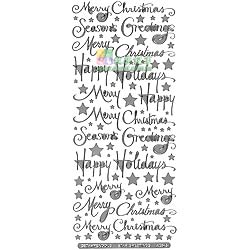 Merry Christmas
Season's Greetings
Merry Christmas
Happy Holidays
Merry Happy
Merry Christmas
Season's Greetings
Happy Holidays
Merry Merry
Christmas
Merry Christmas